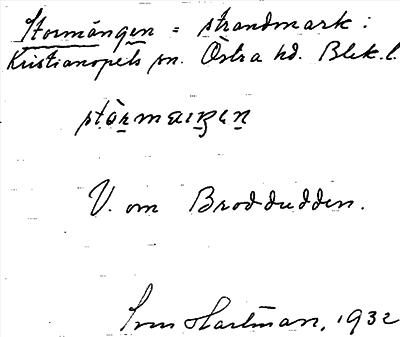 Stormängen = strandmark i
Kristianopels sn. Östra hd. Blek. l.
V. om Broddudden.
Sven Hartman, 1932